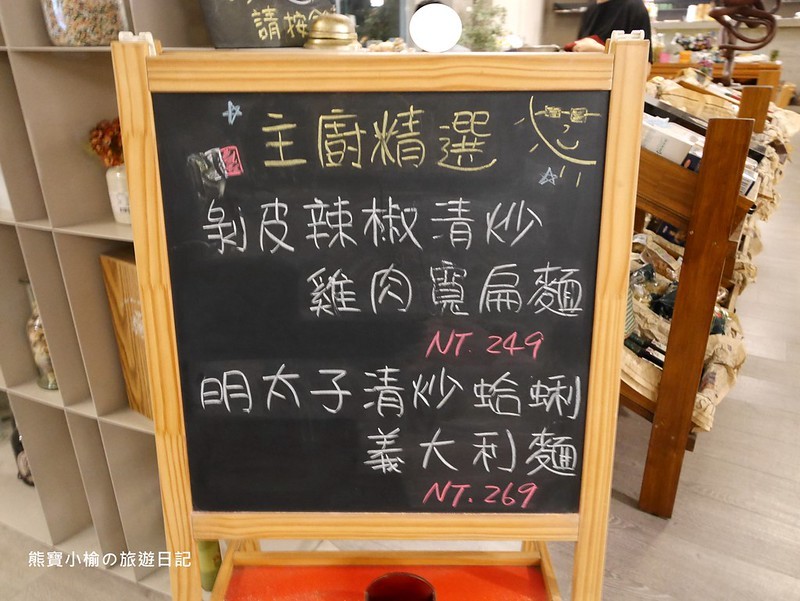 請按鈴
主廚精選
剝皮辣椒清炒
雞肉寬扁麵
NT. 249
明太子清炒蛤蜊
義大利麵
NT. 269
熊寶小榆の旅遊日記